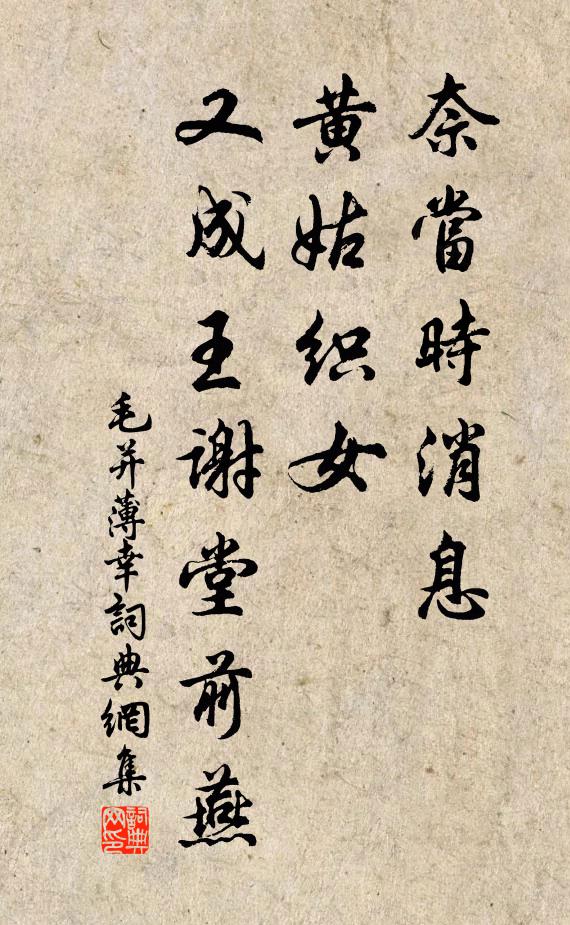 奈當時消息
黄姑织女
又成王谢堂前燕
毛并薄幸詞典網集
詞典网印